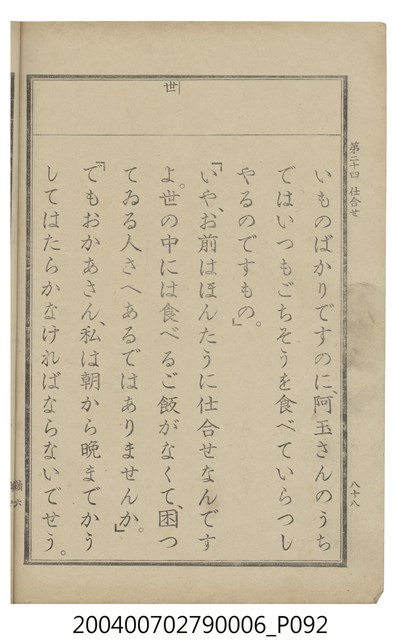 第二十四 仕合せ
八十八
世
いものばかりですのに、阿玉さんのうち
ではいつもごちそうを食べていらつし
やるのですもの。」
「いや、お前はほんたうに仕合せなんです
よ。世の中には食べるご飯がなくて、困つ
てゐる人さへあるではありませんか。」
「でもおかあさん、私は朝から晩までかう
してはたらかなければならないでせう。
200400702790006_P092